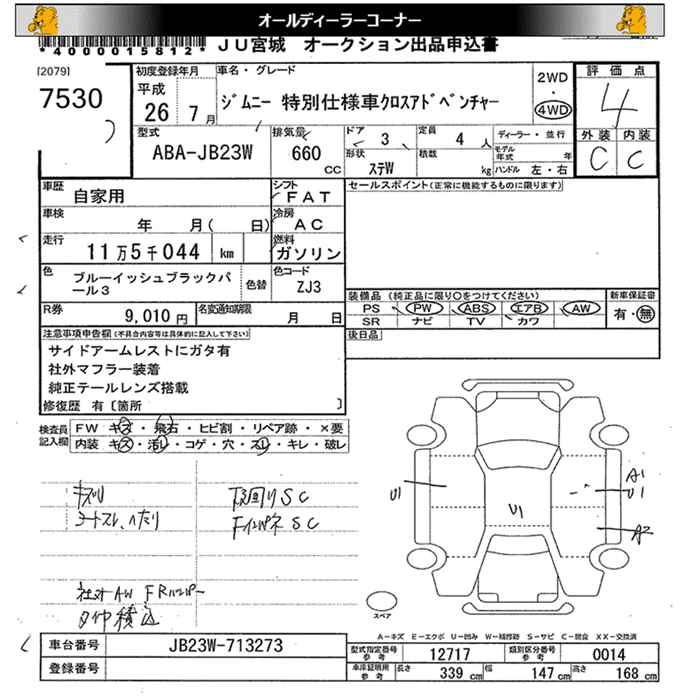 オールディーラーコーナー
*4000015812* JU宮城 オークション出品申込書
[2079]
7530
初度登録年月
平成
26 7月
車名・グレード
ジムニー 特別仕様車クロスアドベンチャー
2WD
・
4WD
評価点
4
外装 内装
C C
型式
ABA-JB23W
排気量
660 CC
ドア 3
定員 4 人
ディーラー・並行
形状 ステW
積載 kg
モデル年式 年
ハンドル 左・右
車歴 自家用
シフト FAT
車検 年 月( 日)
冷房 AC
走行 11万5千044 km
燃料 ガソリン
色 ブルーイッシュブラックパール3
色替
色コード ZJ3
R券 9,010円
名変通知期限 月 日
セールスポイント(正常に機能するものに限ります)
装備品 (純正品に限り○をつけてください)
PS PW ABS エアB AW
SR ナビ TV カワ
新車保証書
有・無
後日品
注意事項申告欄(不具合内容等は具体的に記入して下さい)
サイドアームレストにガタ有
社外マフラー装着
純正テールレンズ搭載
修復歴 有〔箇所 〕
検査員記入欄
FW キズ・飛石・ヒビ割・リペア跡・×要
内装 キズ・汚レ・コゲ・穴・スレ・キレ・破レ
下回りSC
シートスレ、ヘタリ
FインパネSC
社外AW FRバンパー
タイヤ積込
U1
U1
A1
U1
A2
スペア
A-キズ E-エクボ U-凹み W-補修跡 S-サビ C-腐食 XX-交換済
車台番号 JB23W-713273
登録番号
型式指定番号 参考 12717
類別区分番号 参考 0014
車庫証明用 参考 長さ 339 cm 幅 147 cm 高さ 168 cm